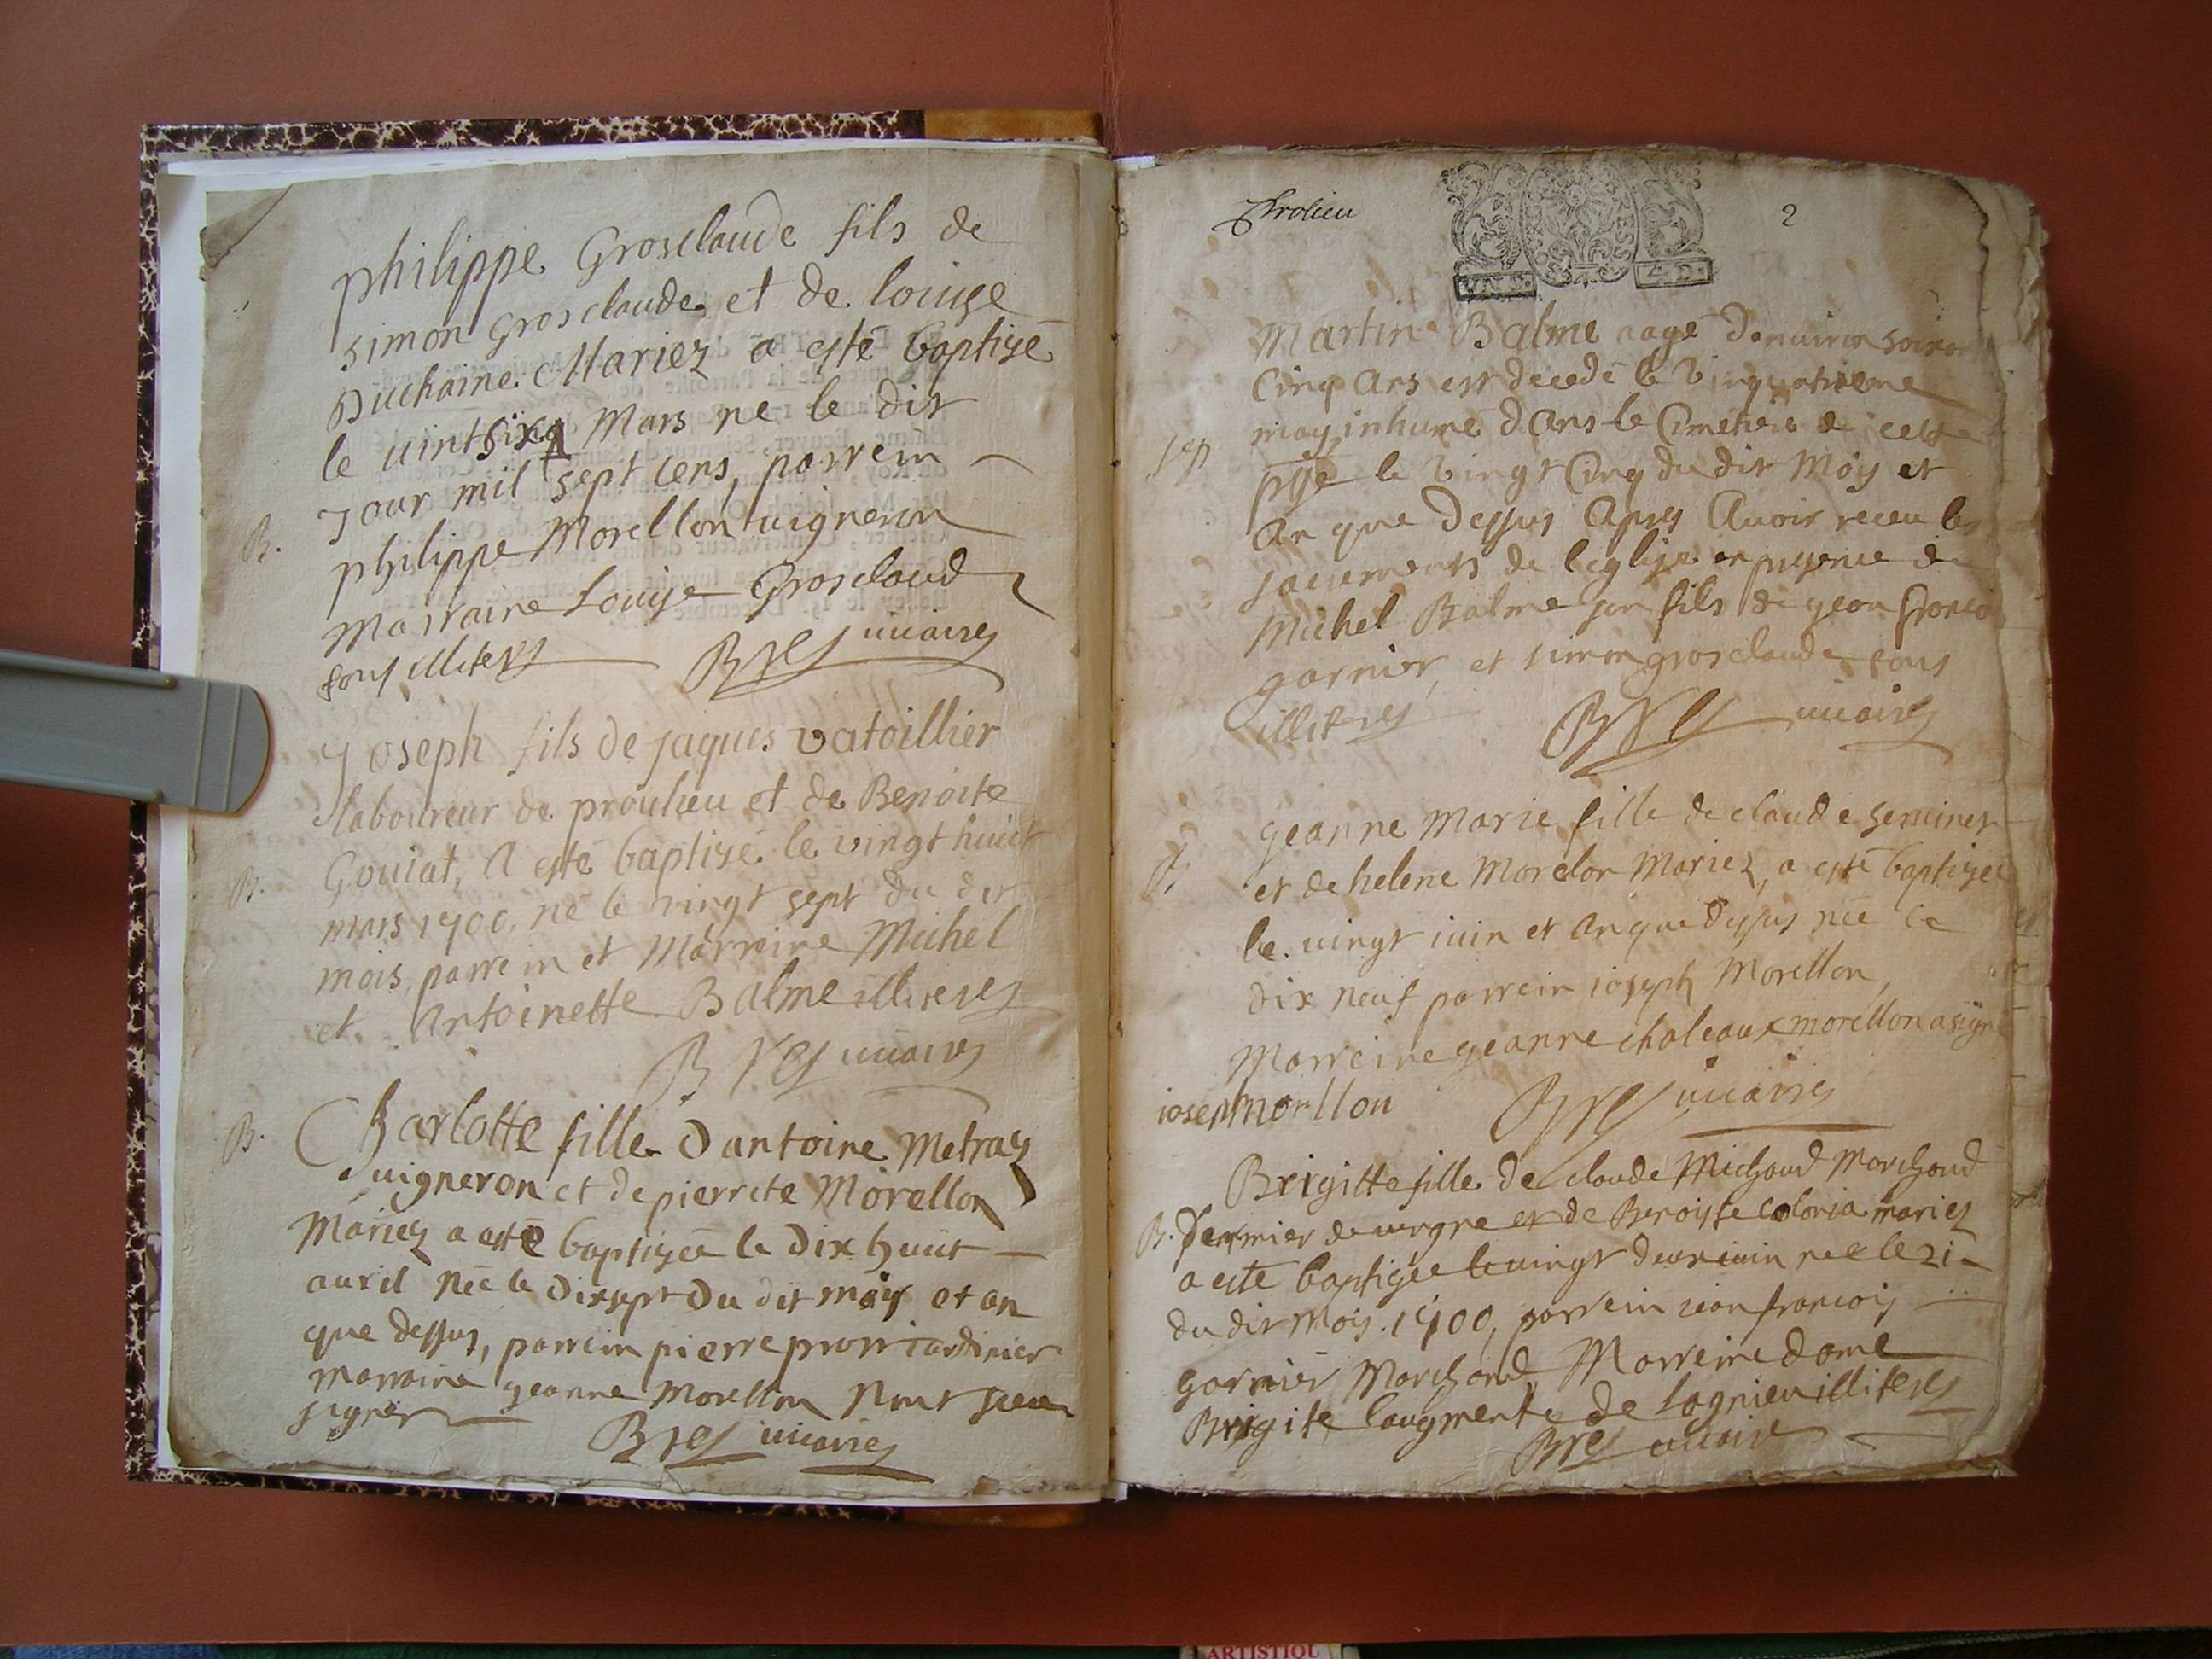 philippe Grosclaude fils de
simon Grosclaude et de louise
Duchaine Mariez a esté baptisé
le uintsixe Mars ne le dit
Jour mil sept cens, parrein
B. philippe Morellon uigneron
Marraine Louise Grosclaud
tous illiteres BReS uicaires
Joseph fils de jaques vatoillier
laboureur de proulieu et de Benoite
B. Gouiat, a esté baptisé le vingt huict
mars 1700, né le vingt sept du dit
mois, parrein et Marreine Michel
et Antoinette Balme illiteres
BReS uicaires
B. Charlotte fille dantoine Metras
uigneron et de pierrete Morellon
Mariez a esté baptisée le dix huict
auril née le dixsept du dit mois et an
que dessus, parrein pierre prost iardinier
marraine geanne Morellon nont sceu
signer BReS uicaires
Prolieu 2
Martin Balme aagé denuiron soixan
Cinq Ans est decedé le vinquatrieme
may inhumé dans le Cimetiere de cette
sep pse le vingt Cinq du dit Moy et
an que dessus Apres Auoir receu les
sacrements de leglise en presence de
Michel Balme son fils de gean francois
garnier, et simon grosclaude tous
illiteres BReS uicaires
Geanne Marie fille de claude seruinet
B. et de helene Morelon Mariez, a esté baptisée
le uingt iuin et an que dessus née le
dix neuf parrein ioseph Morellon,
Marreine geanne chaleaux morellon a signé
ioseph morllon BReS uicaires
Brigitte fille de claude Michaud Marchand
B. fermier de uergne et de Benoiste coloria mariez
a esté baptisée le uingt deux iuin née le 21
du dit Mois 1700, parrein iean francois
garnier Marchand Marreine dame
Brigite laugmente de Lagnieu illiteres
BReS uicaire
ARTISTIQU